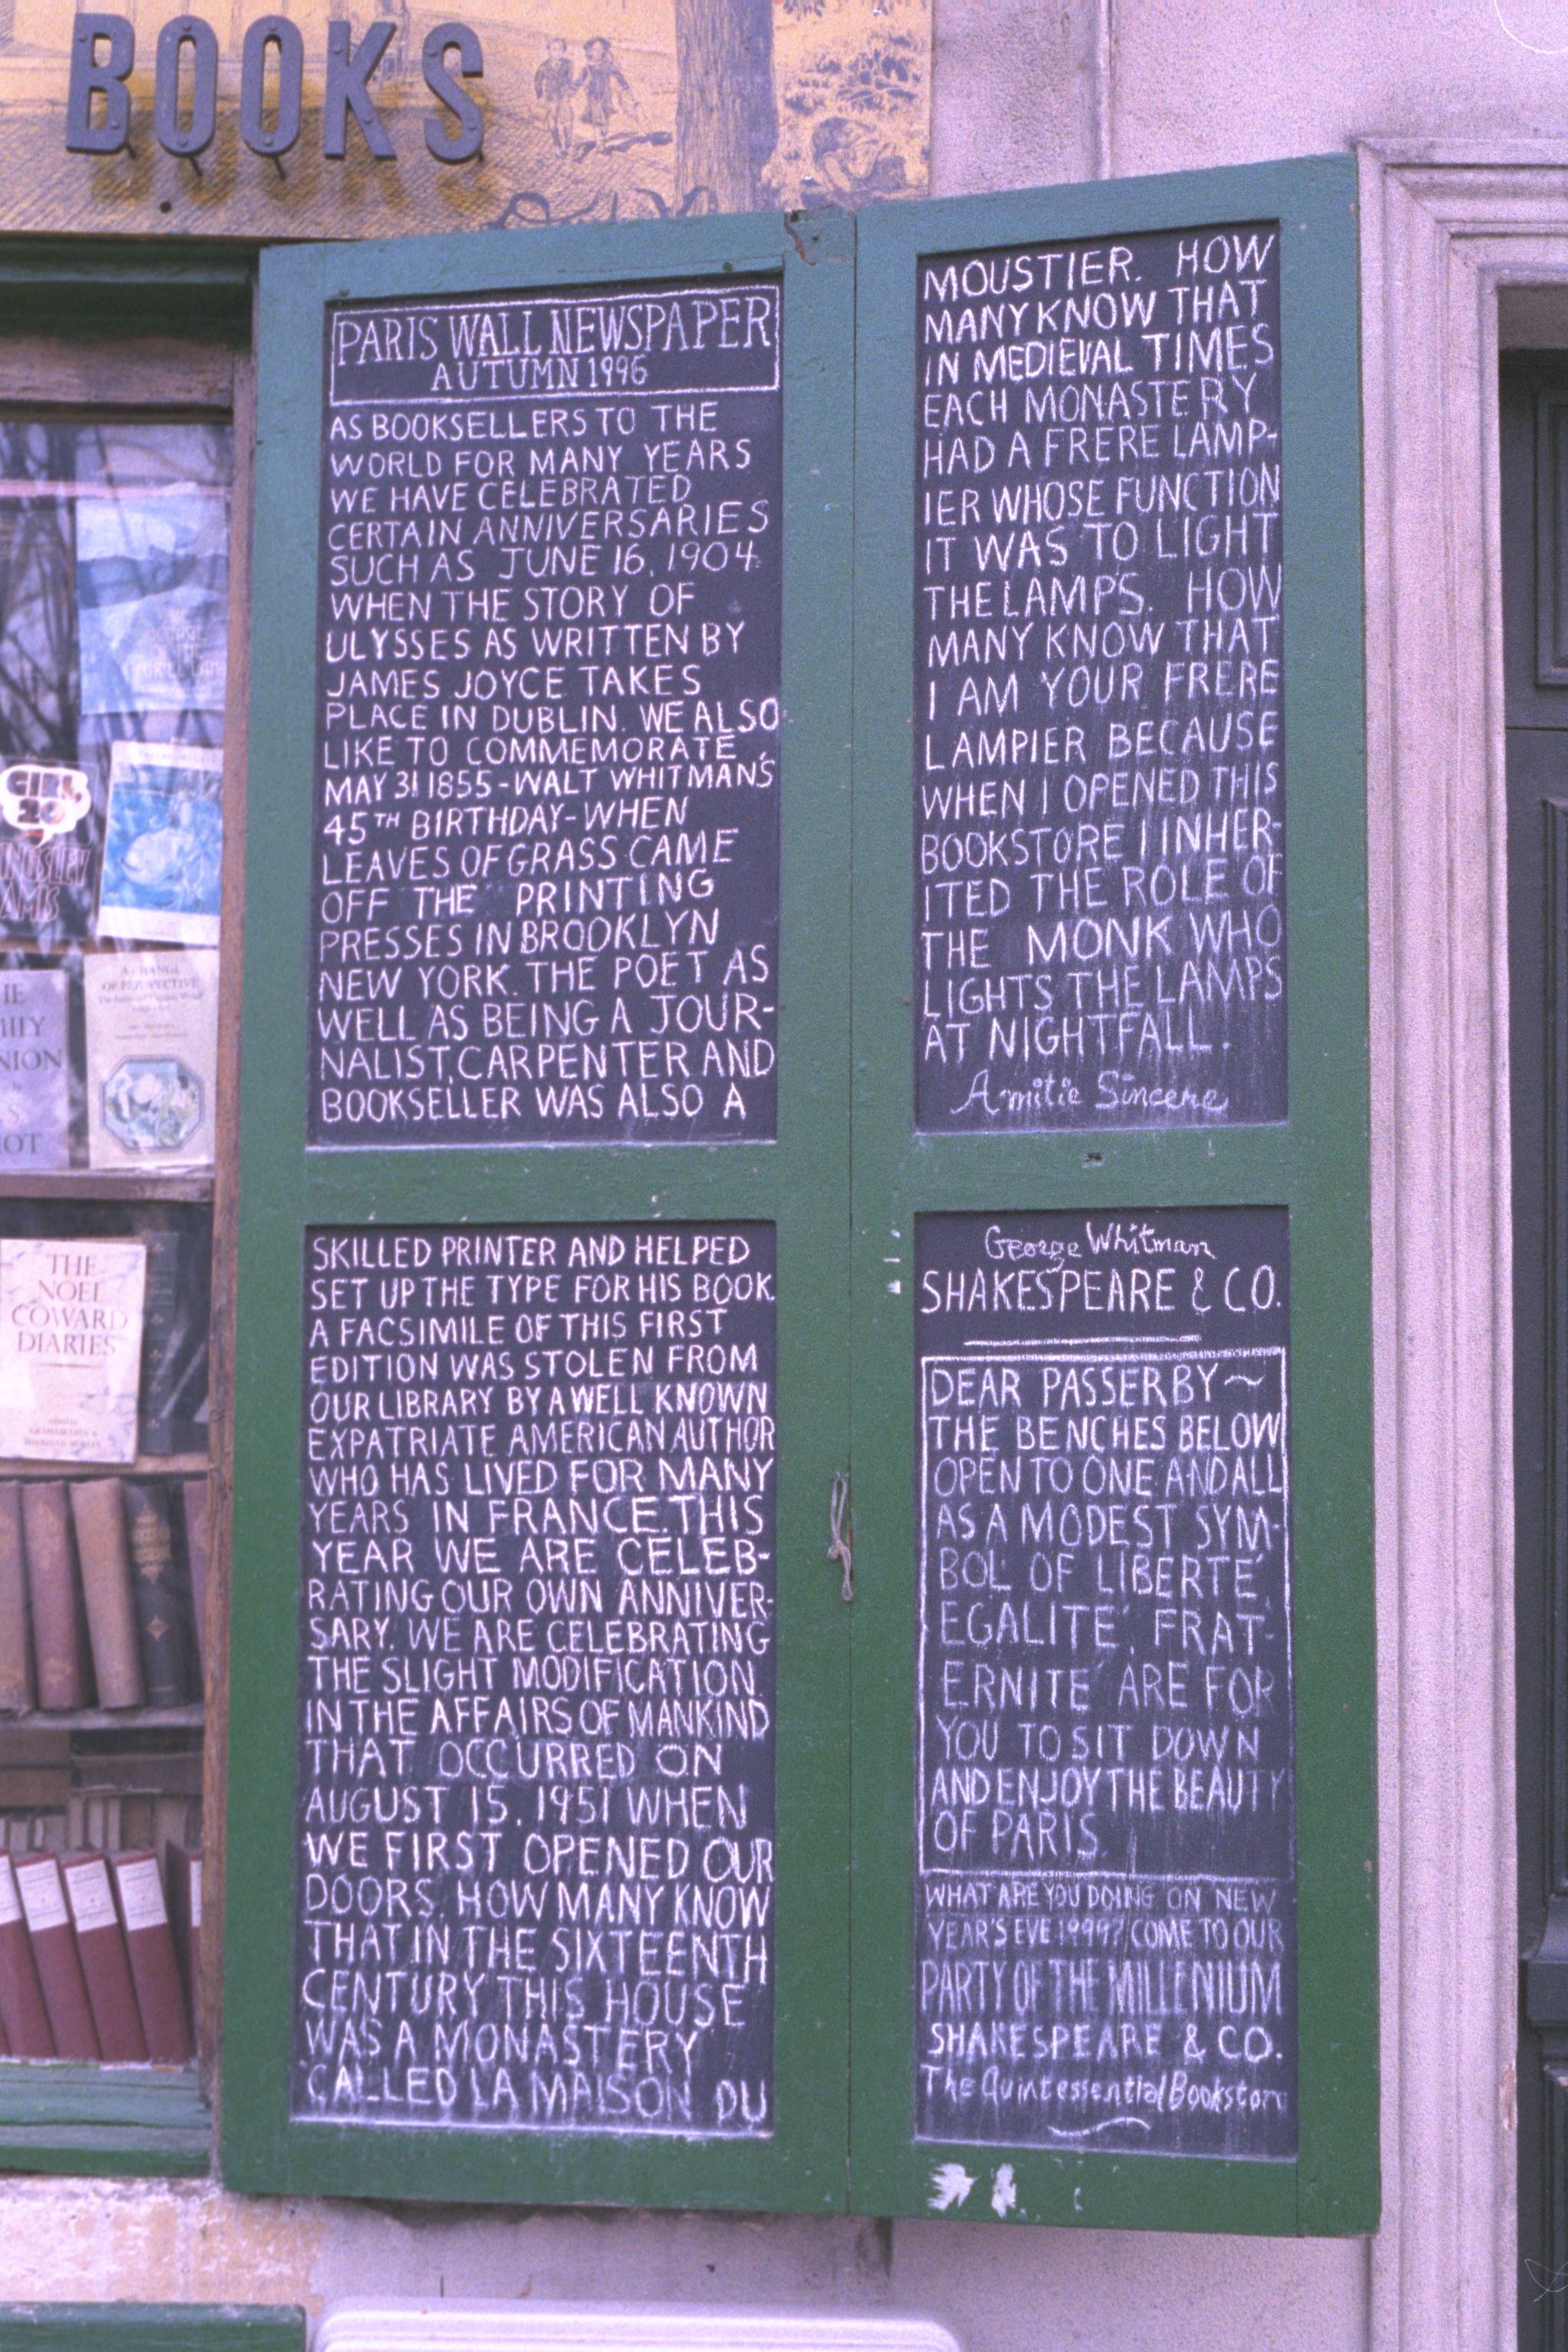 BOOKS
PARIS WALL NEWSPAPER
AUTUMN 1996
AS BOOKSELLERS TO THE
WORLD FOR MANY YEARS
WE HAVE CELEBRATED
CERTAIN ANNIVERSARIES
SUCH AS JUNE 16, 1904
WHEN THE STORY OF
ULYSSES AS WRITTEN BY
JAMES JOYCE TAKES
PLACE IN DUBLIN. WE ALSO
LIKE TO COMMEMORATE
MAY 31 1855 - WALT WHITMAN'S
45TH BIRTHDAY - WHEN
LEAVES OF GRASS CAME
OFF THE PRINTING
PRESSES IN BROOKLYN
NEW YORK. THE POET AS
WELL AS BEING A JOUR-
NALIST, CARPENTER AND
BOOKSELLER WAS ALSO A
SKILLED PRINTER AND HELPED
SET UP THE TYPE FOR HIS BOOK.
A FACSIMILE OF THIS FIRST
EDITION WAS STOLEN FROM
OUR LIBRARY BY A WELL KNOWN
EXPATRIATE AMERICAN AUTHOR
WHO HAS LIVED FOR MANY
YEARS IN FRANCE. THIS
YEAR WE ARE CELEB-
RATING OUR OWN ANNIVER-
SARY. WE ARE CELEBRATING
THE SLIGHT MODIFICATION
IN THE AFFAIRS OF MANKIND
THAT OCCURRED ON
AUGUST 15, 1951 WHEN
WE FIRST OPENED OUR
DOORS. HOW MANY KNOW
THAT IN THE SIXTEENTH
CENTURY THIS HOUSE
WAS A MONASTERY
CALLED LA MAISON DU
MOUSTIER. HOW
MANY KNOW THAT
IN MEDIEVAL TIMES
EACH MONASTERY
HAD A FRERE LAMP-
IER WHOSE FUNCTION
IT WAS TO LIGHT
THE LAMPS. HOW
MANY KNOW THAT
I AM YOUR FRERE
LAMPIER BECAUSE
WHEN I OPENED THIS
BOOKSTORE I INHER-
ITED THE ROLE OF
THE MONK WHO
LIGHTS THE LAMPS
AT NIGHTFALL.
Amitié Sincere
George Whitman
SHAKESPEARE & CO.
DEAR PASSERBY ~
THE BENCHES BELOW
OPEN TO ONE AND ALL
AS A MODEST SYM-
BOL OF LIBERTÉ
EGALITÉ, FRAT-
ERNITÉ ARE FOR
YOU TO SIT DOWN
AND ENJOY THE BEAUTY
OF PARIS.
WHAT ARE YOU DOING ON NEW
YEAR'S EVE 1999? COME TO OUR
PARTY OF THE MILLENIUM
SHAKESPEARE & CO.
The Quintessential Bookstore
GIRL,
20
A CHANGE
OF PERSPECTIVE
THE
NOEL
COWARD
DIARIES